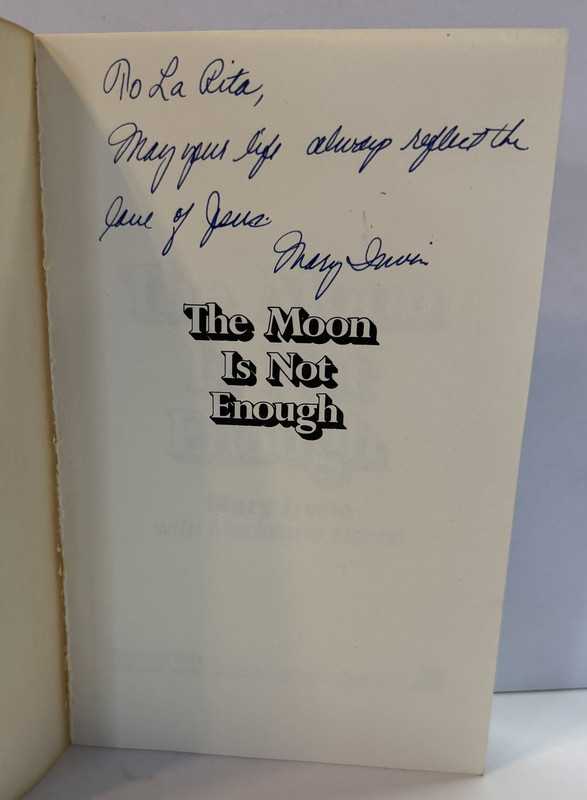 To La Rita,
May your life always reflect the
love of Jesus.
Mary Irwin
The Moon
Is Not
Enough